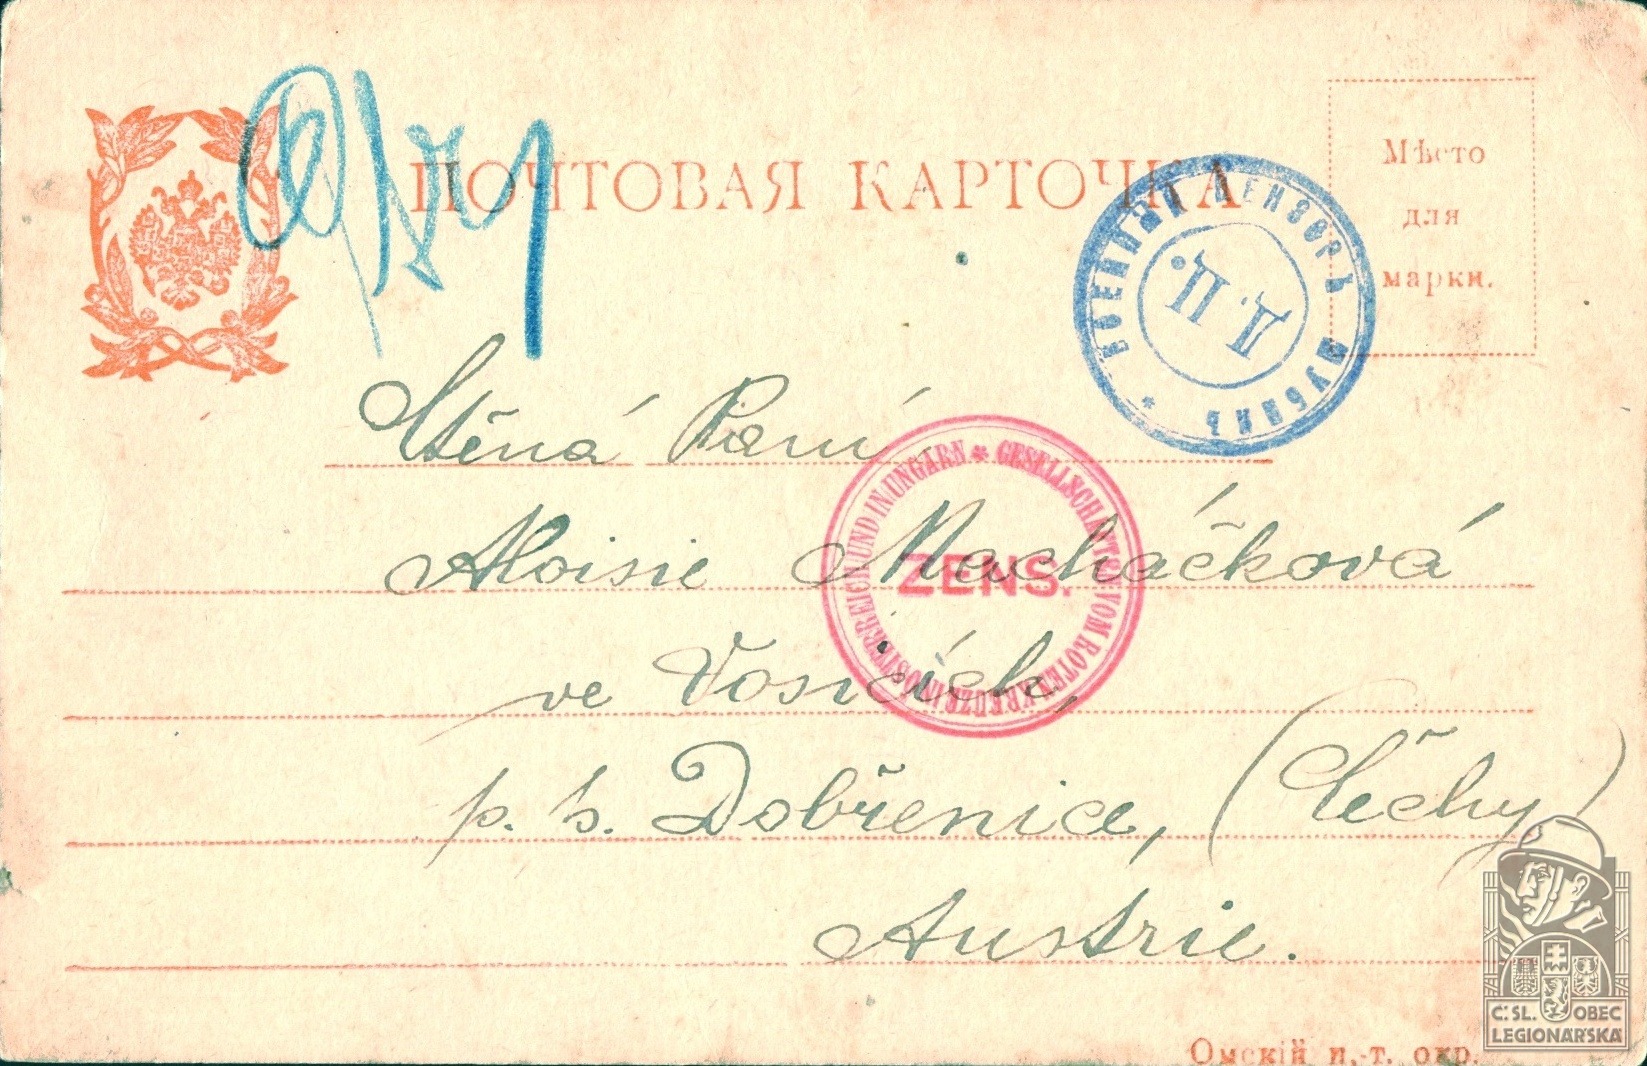 ПОЧТОВАЯ КАРТОЧКА
Мѣсто
для
марки.
ВОЕННЫЙ ЦЕНЗОРЪ
Д. П.
Ctěná Paní
Aloisie Macháčková
ve Vosicích,
p. h. Dobřenice, (Čechy)
Austrie.
GESELLSCHAFTEN VOM ROTEN KREUZE IN OSTERREICH UND IN UNGARN
ZENS.
Омскій и.-т. окр.
Č: SL. OBEC
LEGIONÁŘSKÁ